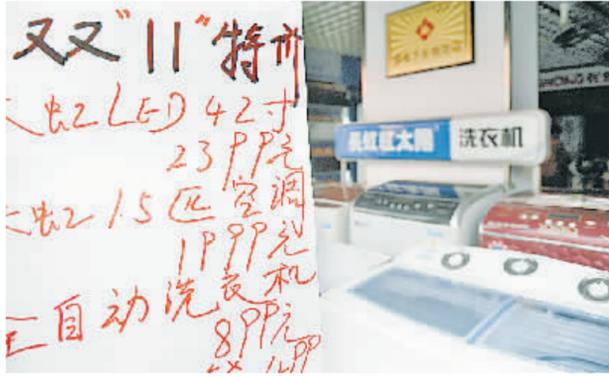 双双"11"特价
长虹LED 42寸
2399元
长虹1.5匹空调
1999元
全自动洗衣机
899元
长虹红太阳 洗衣机